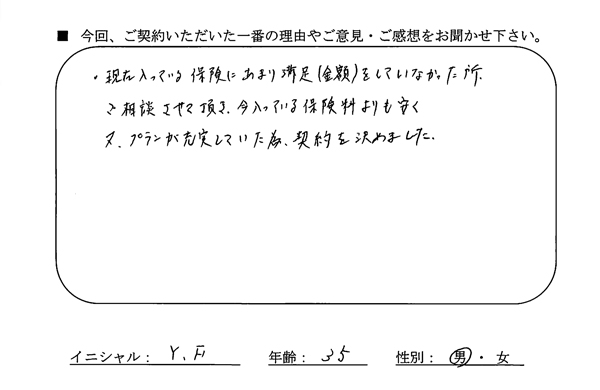 ■ 今回、ご契約いただいた一番の理由やご意見・ご感想をお聞かせ下さい。
・現在入っている保険にあまり満足(金額)をしていなかった所、
ご相談させて頂き、今入っている保険料よりも安く
又、プランが充実していた為、契約を決めました。
イニシャル： Y.F 年齢： 35 性別： 男・女